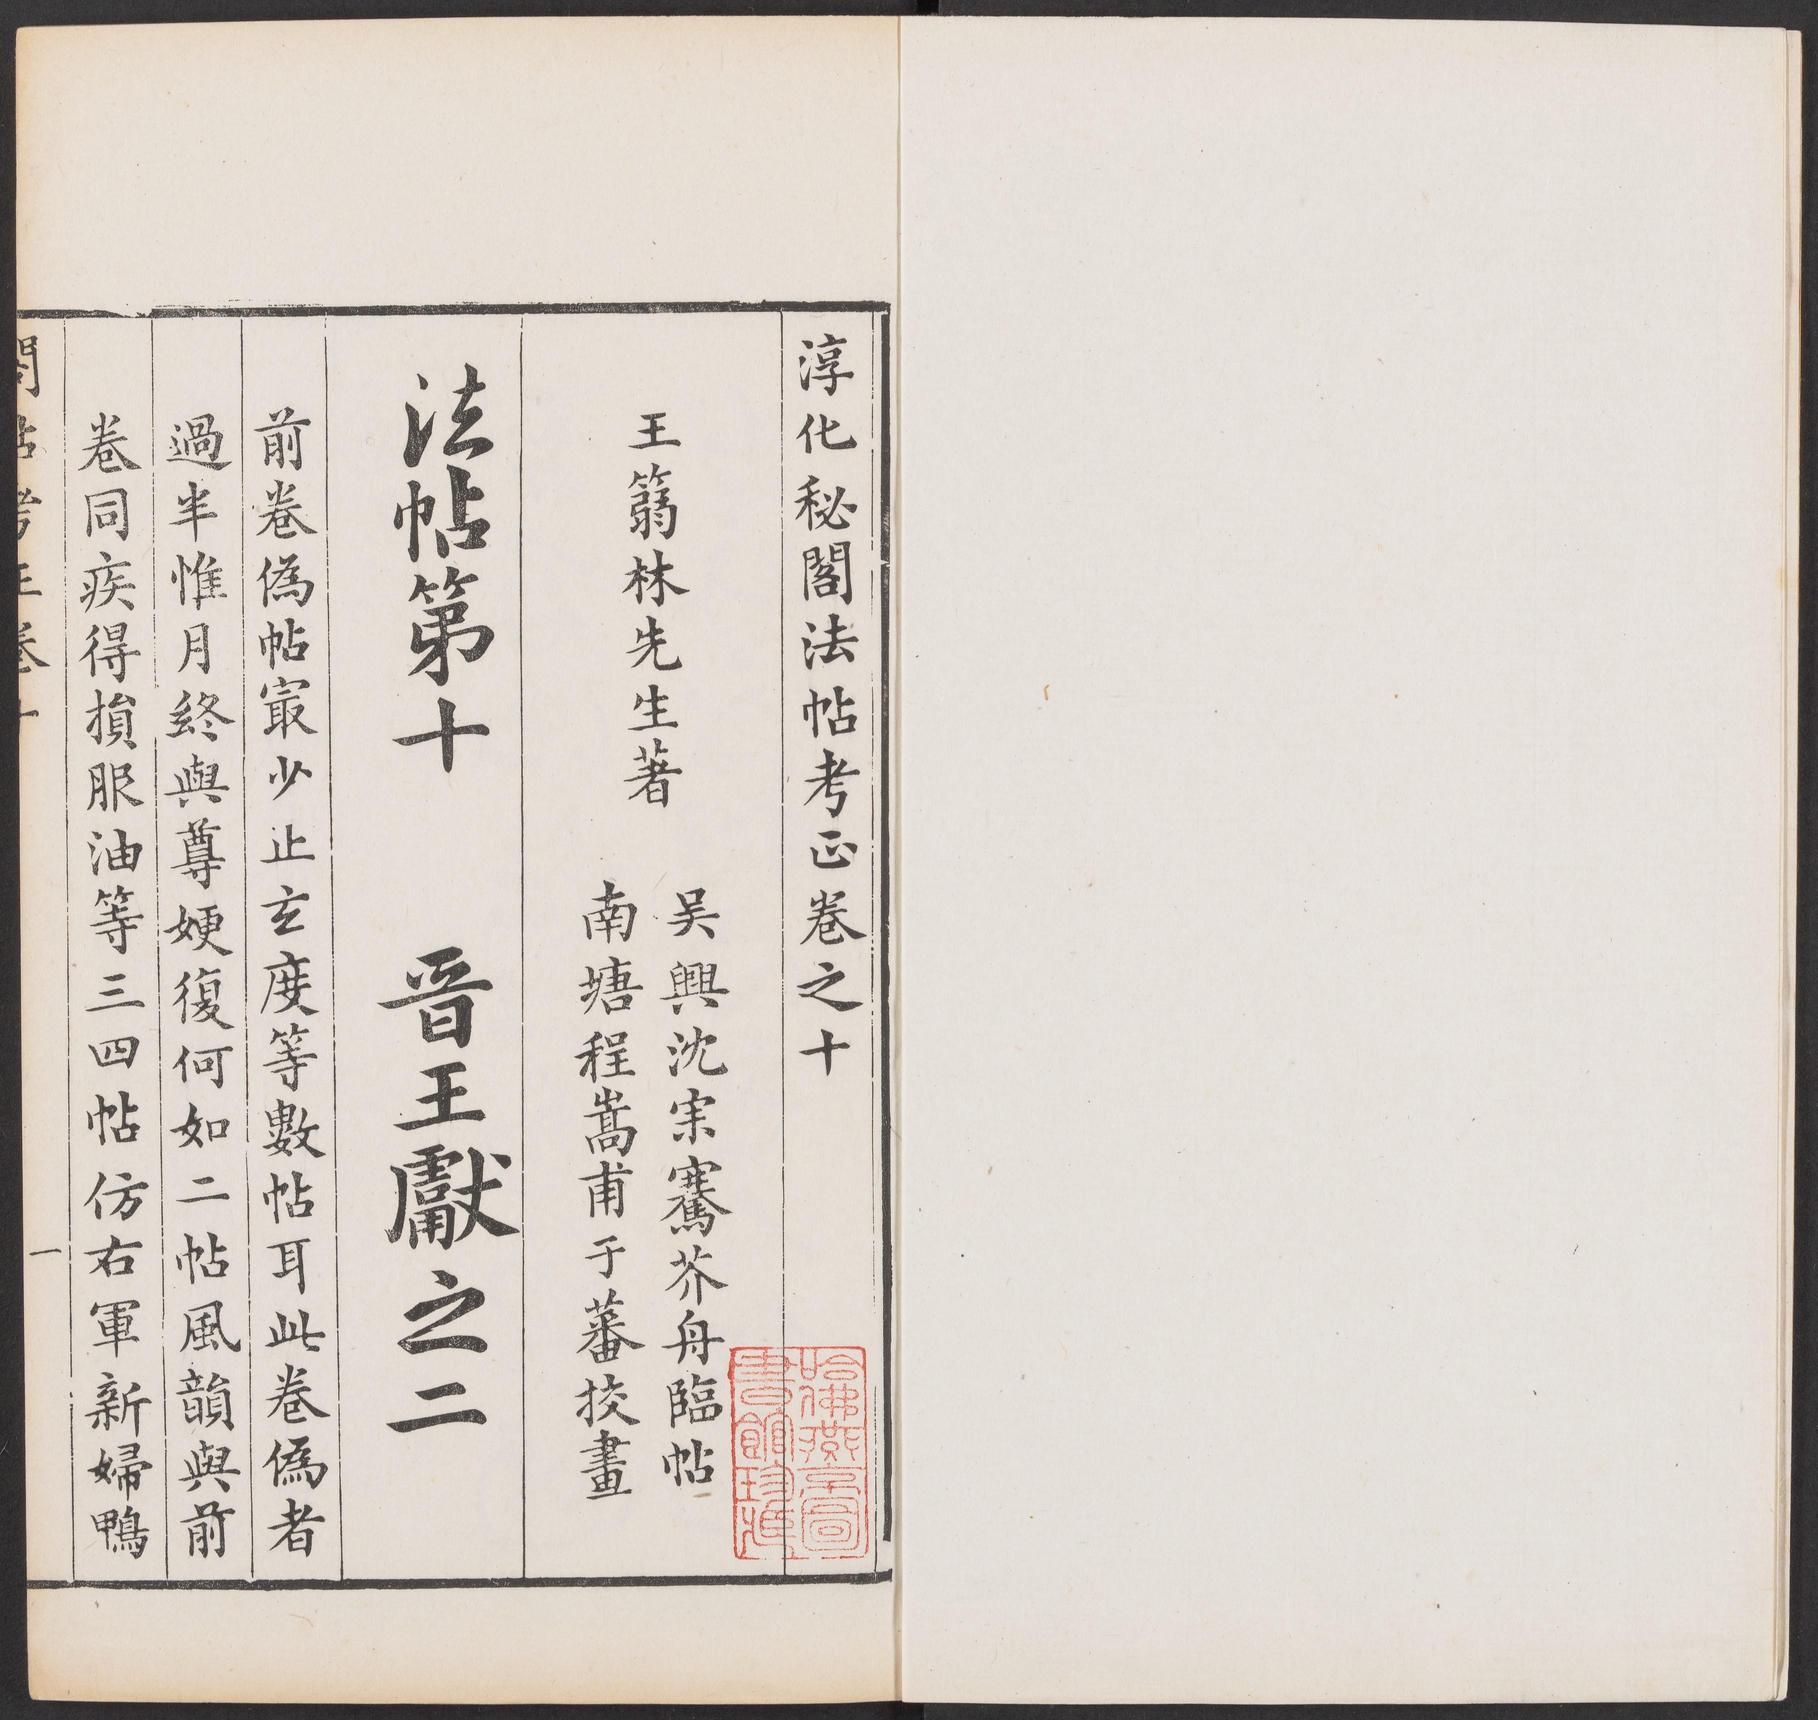 淳化秘閣法帖考正卷之十
王篛林先生著
吳興沈宗騫芥舟臨帖
南塘程嵩甫于蕃挍畫
法帖第十 晉王獻之二
前卷偽帖㝡少止玄度等數帖耳此卷偽者
過半惟月終與尊㛐復何如二帖風韻與前
卷同疾得損服油等三四帖仿右軍新婦鴨
閣帖考正卷十
一
哈佛燕京圖
書館珍藏